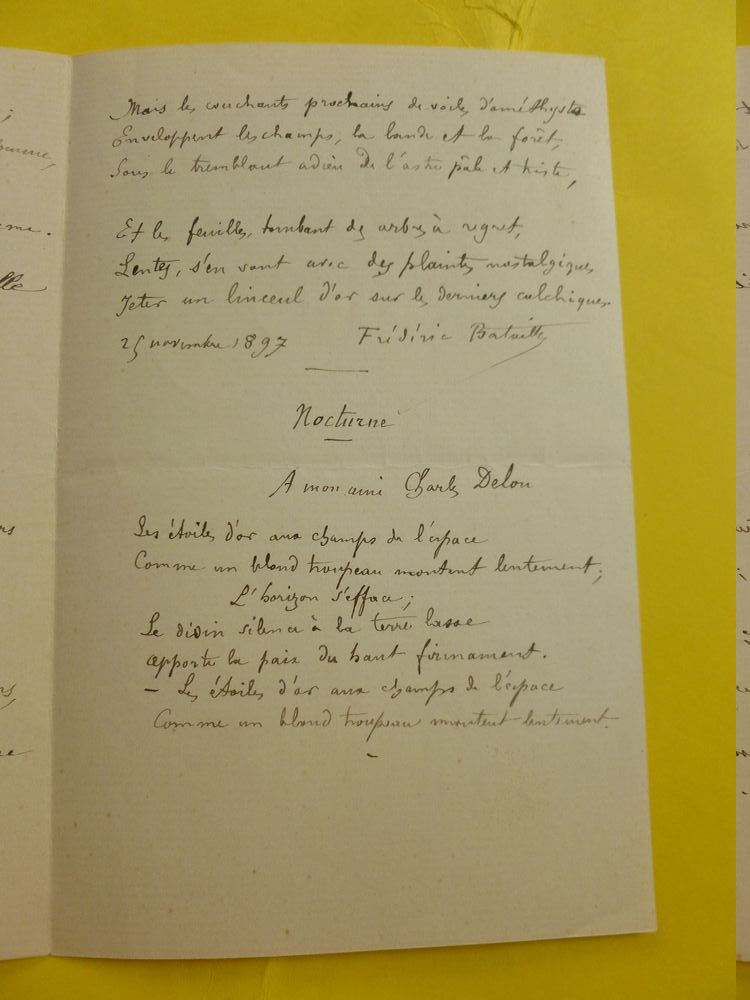 ;
Mais les couchants prochains de voiles d'améthyste
Enveloppent les champs, la lande et la forêt,
Sous le tremblant adieu de l'astre pâle et triste,
Et les feuilles, tombant des arbres à regret,
Lentes, s'en vont avec des plaintes nostalgiques
Jeter un linceul d'or sur les derniers colchiques.
25 novembre 1897 Frédéric Bataille
Nocturne
A mon ami Charles Delon
Les étoiles d'or aux champs de l'espace
Comme un blond troupeau montent lentement;
L'horizon s'efface;
Le divin silence à la terre lasse
apporte la paix du haut firmament.
– Les étoiles d'or aux champs de l'espace
Comme un blond troupeau montent lentement.